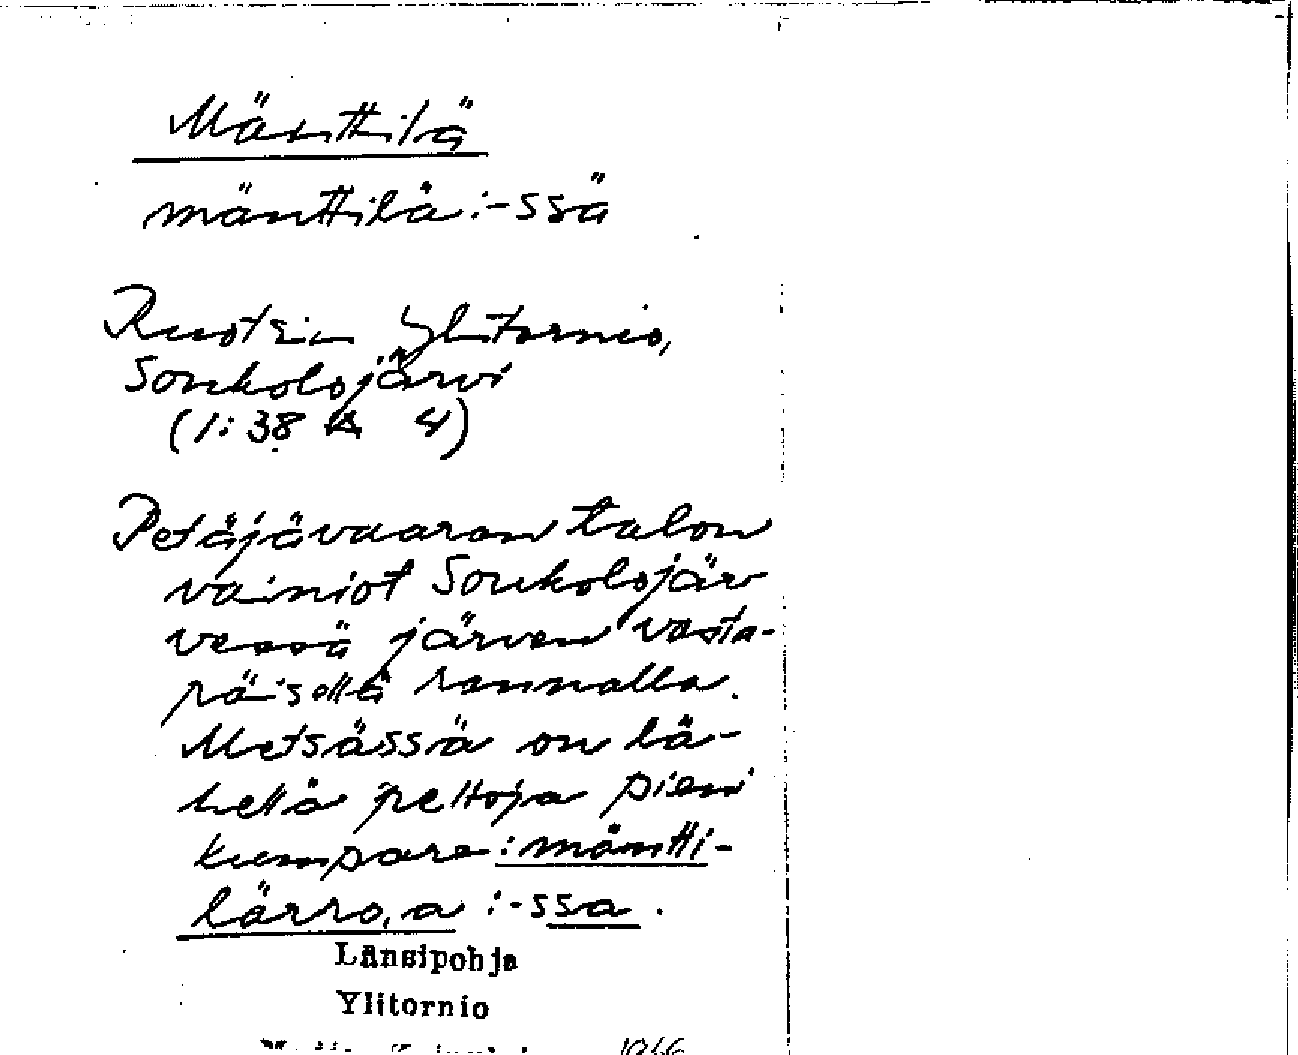 Mänttilä
mänttilä :-ssä
Ruotsin Ylitornio,
Soukolojärvi
(1:38 4)
Petäjävaaran talon
vainiot Soukolojär
vessä järven vasta-
päisellä rannalla.
Metsässä on lä-
hellä peltoja pieni
kumpare :mäntti-
lärro,a :-ssa.
Länsipohja
Ylitornio
1966